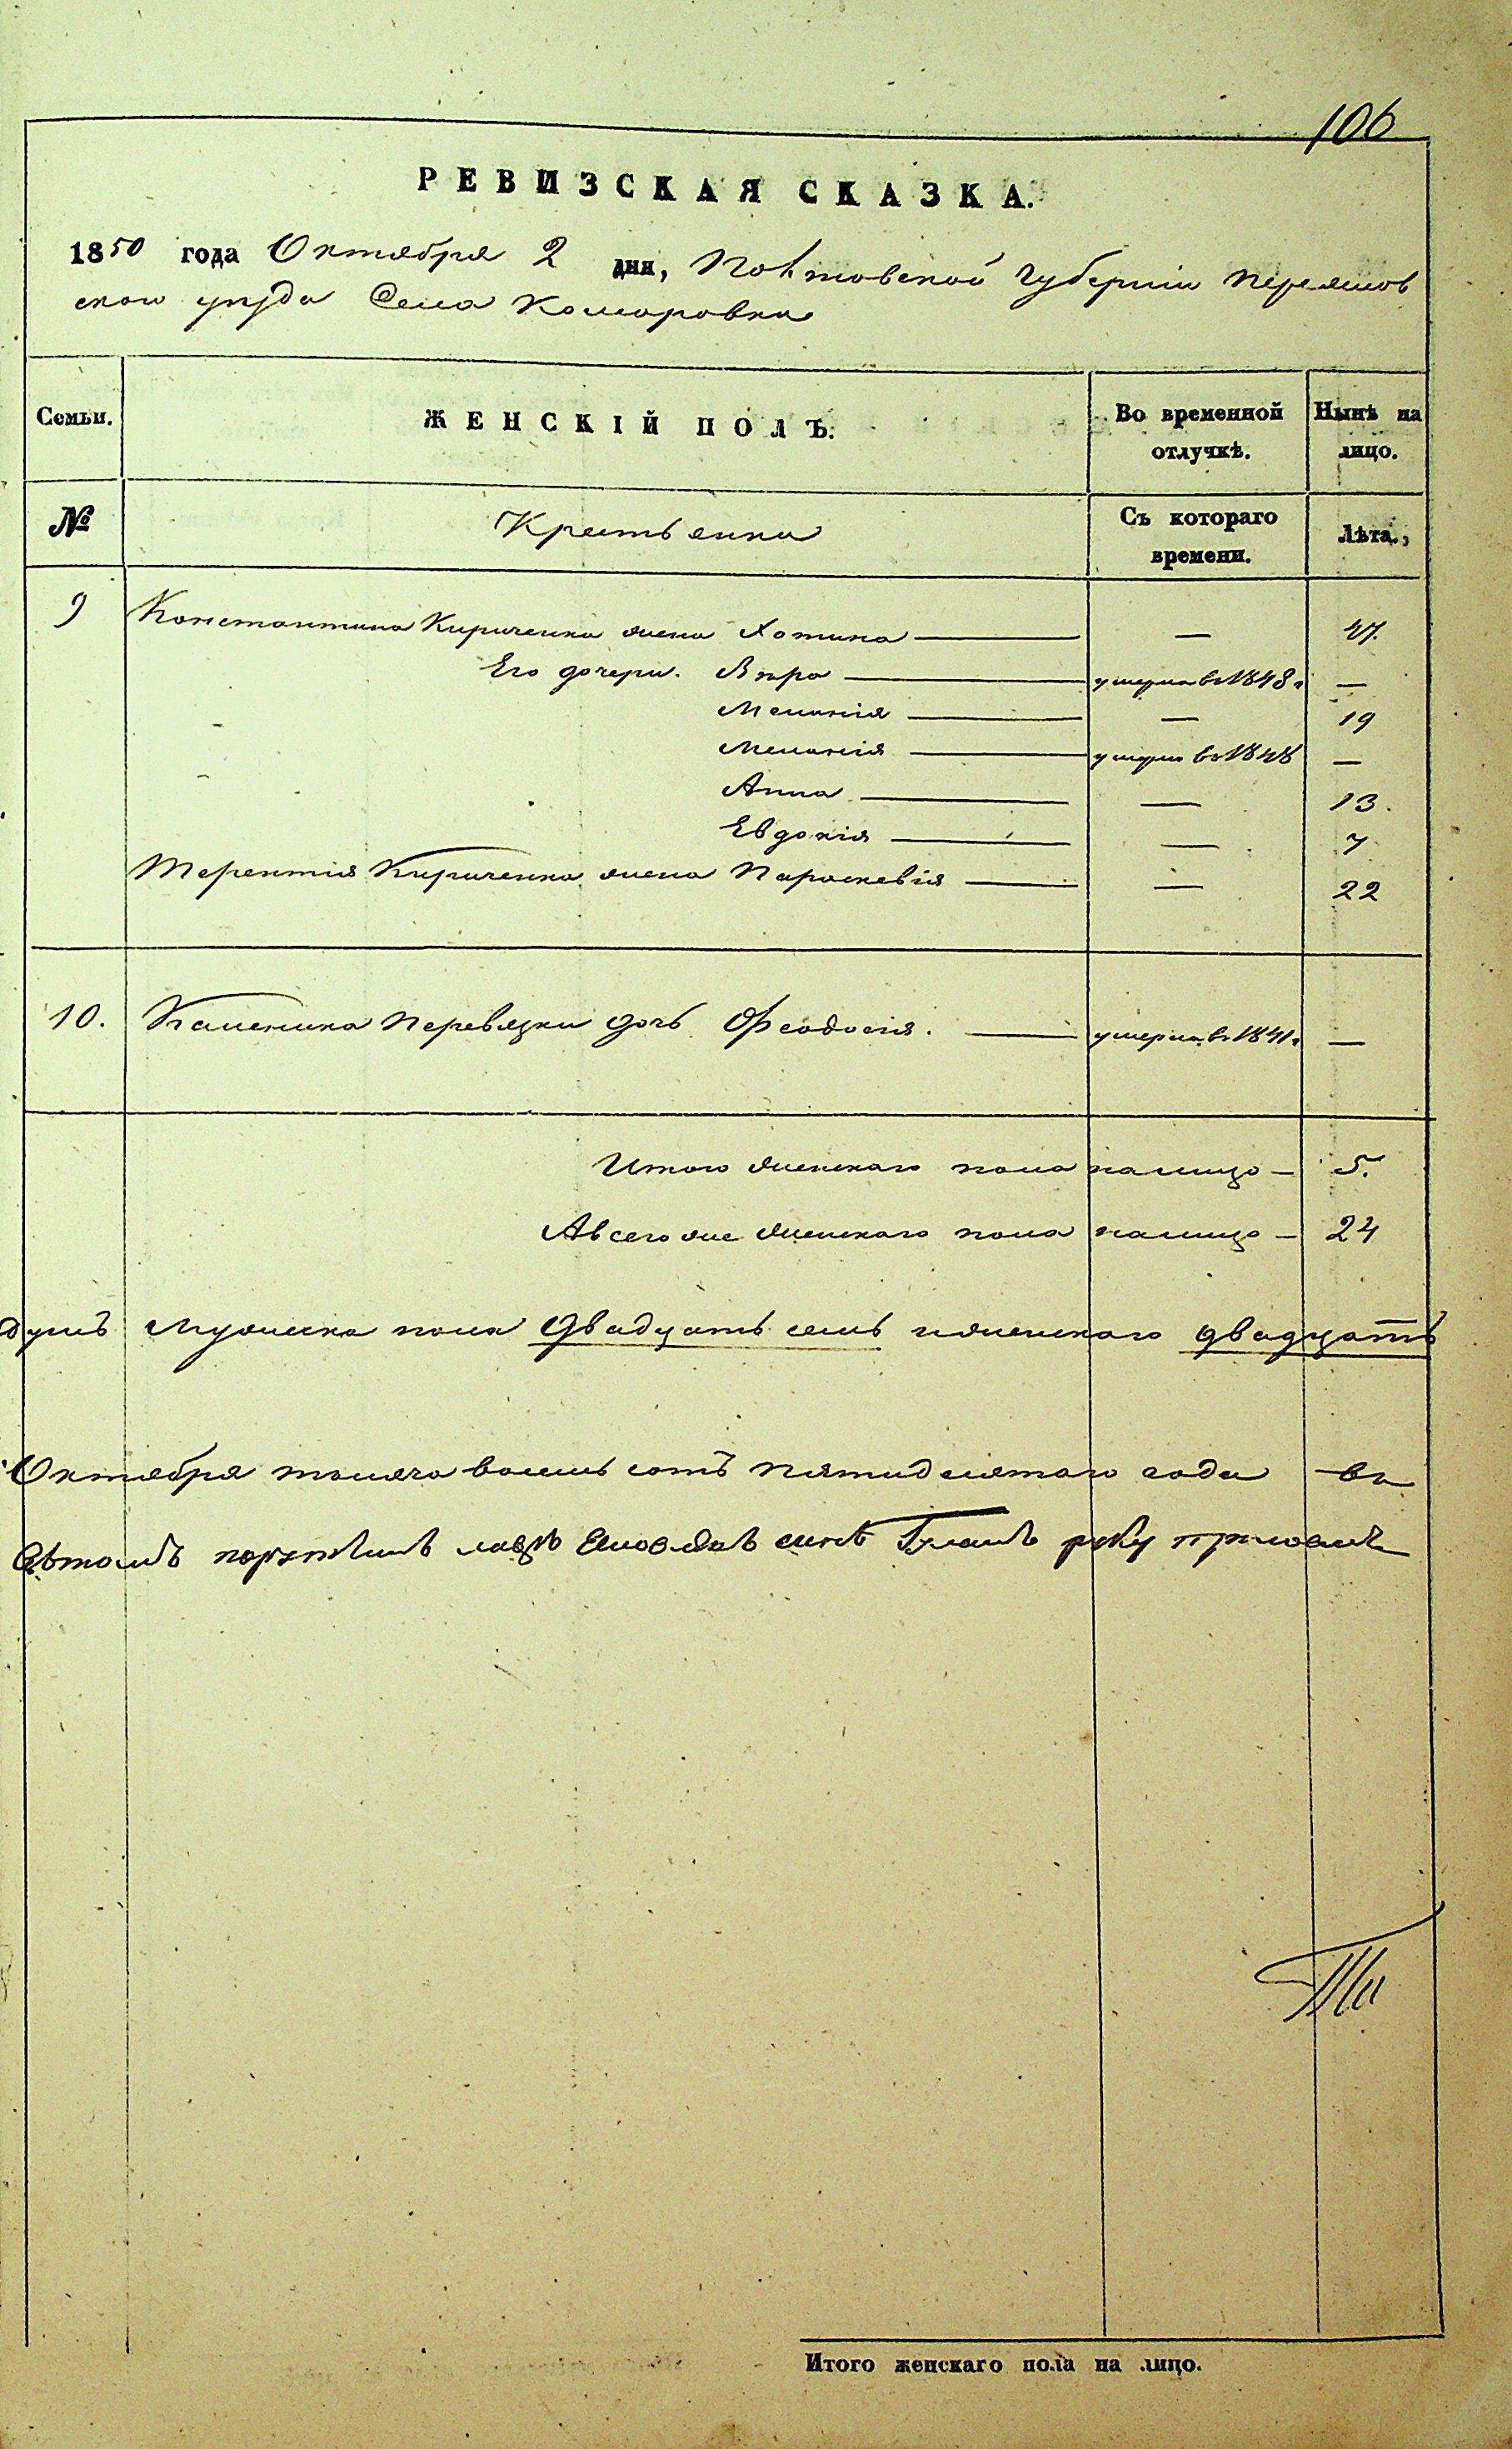 106
РЕВИЗСКАЯ СКАЗКА.
1850 года Октября 2 дня, Полтовской Губерніи Переяслов
ской уезда Села Коморовки
Семьи. ЖЕНСКІЙ ПОЛЪ. Во временной отлучкѣ. Нынѣ на лицо.
№ Крестьянки Съ котораго времени. Лѣта.
9 Константина Кириченка жена Хотина — — 47.
Его дочери. Вѣра — умерла въ 1848 г —
Меланія — — 19
Меланія — умерла въ 1848 —
Анна — — 13.
Евдокія — — 7
Терентія Кириченка жена Параскевія — — 22
10. Перевязки дочь Феодосія. — умерла въ 1841 г —
Итого женскаго пола налицо — 5.
А всего же женскаго пола налицо — 24
душъ мужеска пола двадцать семь и женскаго двадцать
Октября тысяча восемь сотъ пятидесятаго года
руку приложилъ
Итого женскаго пола на лицо.